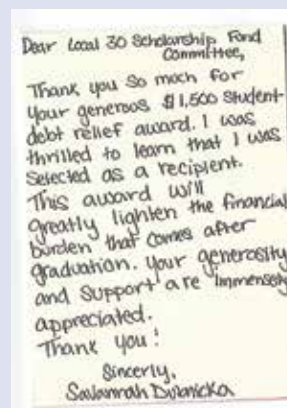 Dear Local 30 Scholarship Fund
Committee,
Thank you so much for
your generous $1,500 student
debt relief award. I was
thrilled to learn that I was
selected as a recipient.
This award will
greatly lighten the financial
burden that comes after
graduation. Your generosity
and support are immensely
appreciated.
Thank you!
Sincerly,
Savannah